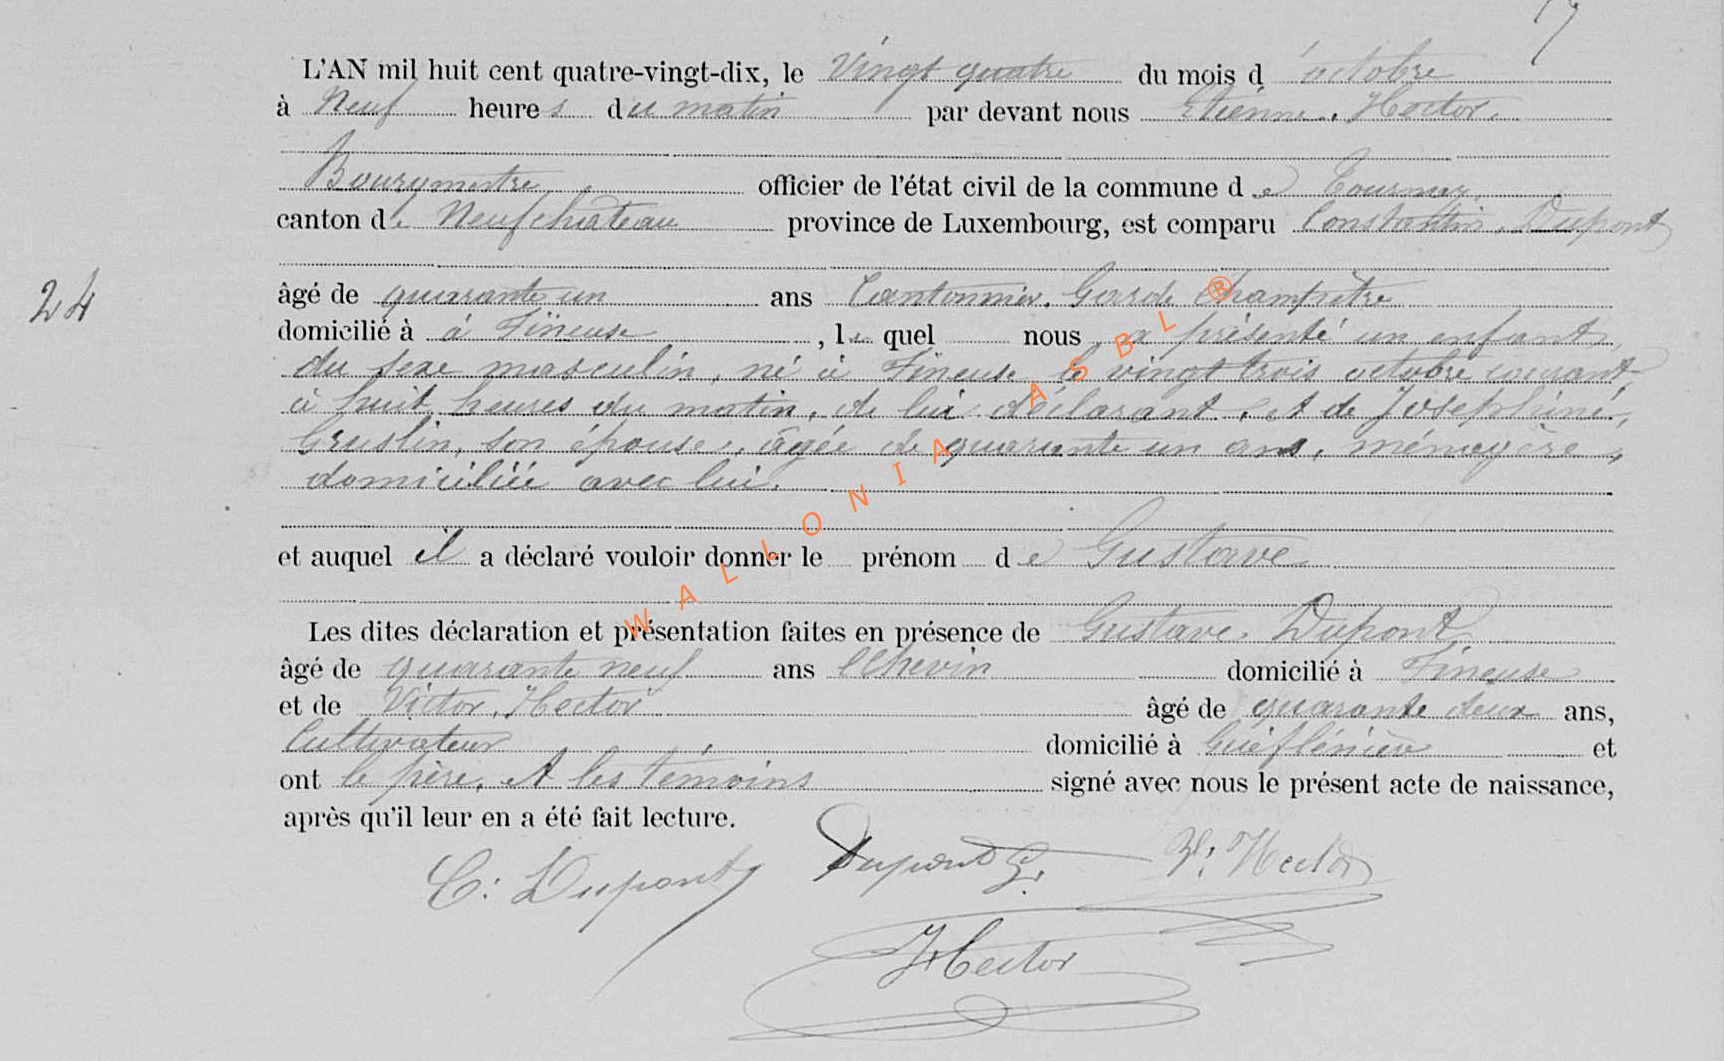 L'AN mil huit cent quatre-vingt-dix, le Vingt quatre du mois d'octobre
à Neuf heures du matin par devant nous Etienne, Hector,
Bourgmestre, officier de l'état civil de la commune de Tournay,
canton de Neufchâteau province de Luxembourg, est comparu Constantin, Dupont
24
âgé de quarante un ans Cantonnier, Garde Champêtre
domicilié à á Fineuse, lequel nous a présenté un enfant,
du sexe masculin, né à Fineuse le vingt trois octobre courant,
à huit heures du matin, de lui déclarant, et de Joséphine,
Greslin, son épouse, âgée de quarante un ans, ménagère,
domiciliée avec lui.
et auquel il a déclaré vouloir donner le prénom de Gustave
Les dites déclaration et présentation faites en présence de Gustave, Dupont,
âgé de quarante neuf ans Echevin domicilié à Fineuse
et de Victor, Hector âgé de quarante deux ans,
Cultivateur domicilié à et
ont le père, et les témoins signé avec nous le présent acte de naissance,
après qu'il leur en a été fait lecture.
C: Dupont Dupont G. V: Hector
Hector
WALLONIA ASBL ®